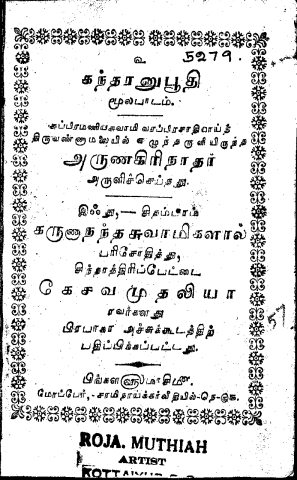 உ
5279.
கந்தரனுபூதி
மூலபாடம்.
சுப்பிரமணியசுவாமி வரப்பிரசாதியாய்த்
திருவண்ணாமலையில் எழுந்தருளியிருந்த
அருணகிரிநாதர்
அருளிச்செய்தது.
இஃது,— சிதம்பரம்
கருணாநந்தசுவாமிகளால்
பரிசோதித்து,
சிந்தாத்திரிப்பேட்டை
கேசவ முதலியா
ரவர்களது
பிரபாகர அச்சுக்கூடத்திற்
பதிப்பிக்கப்பட்டது.
57
ROJA. MUTHIAH
ARTIST